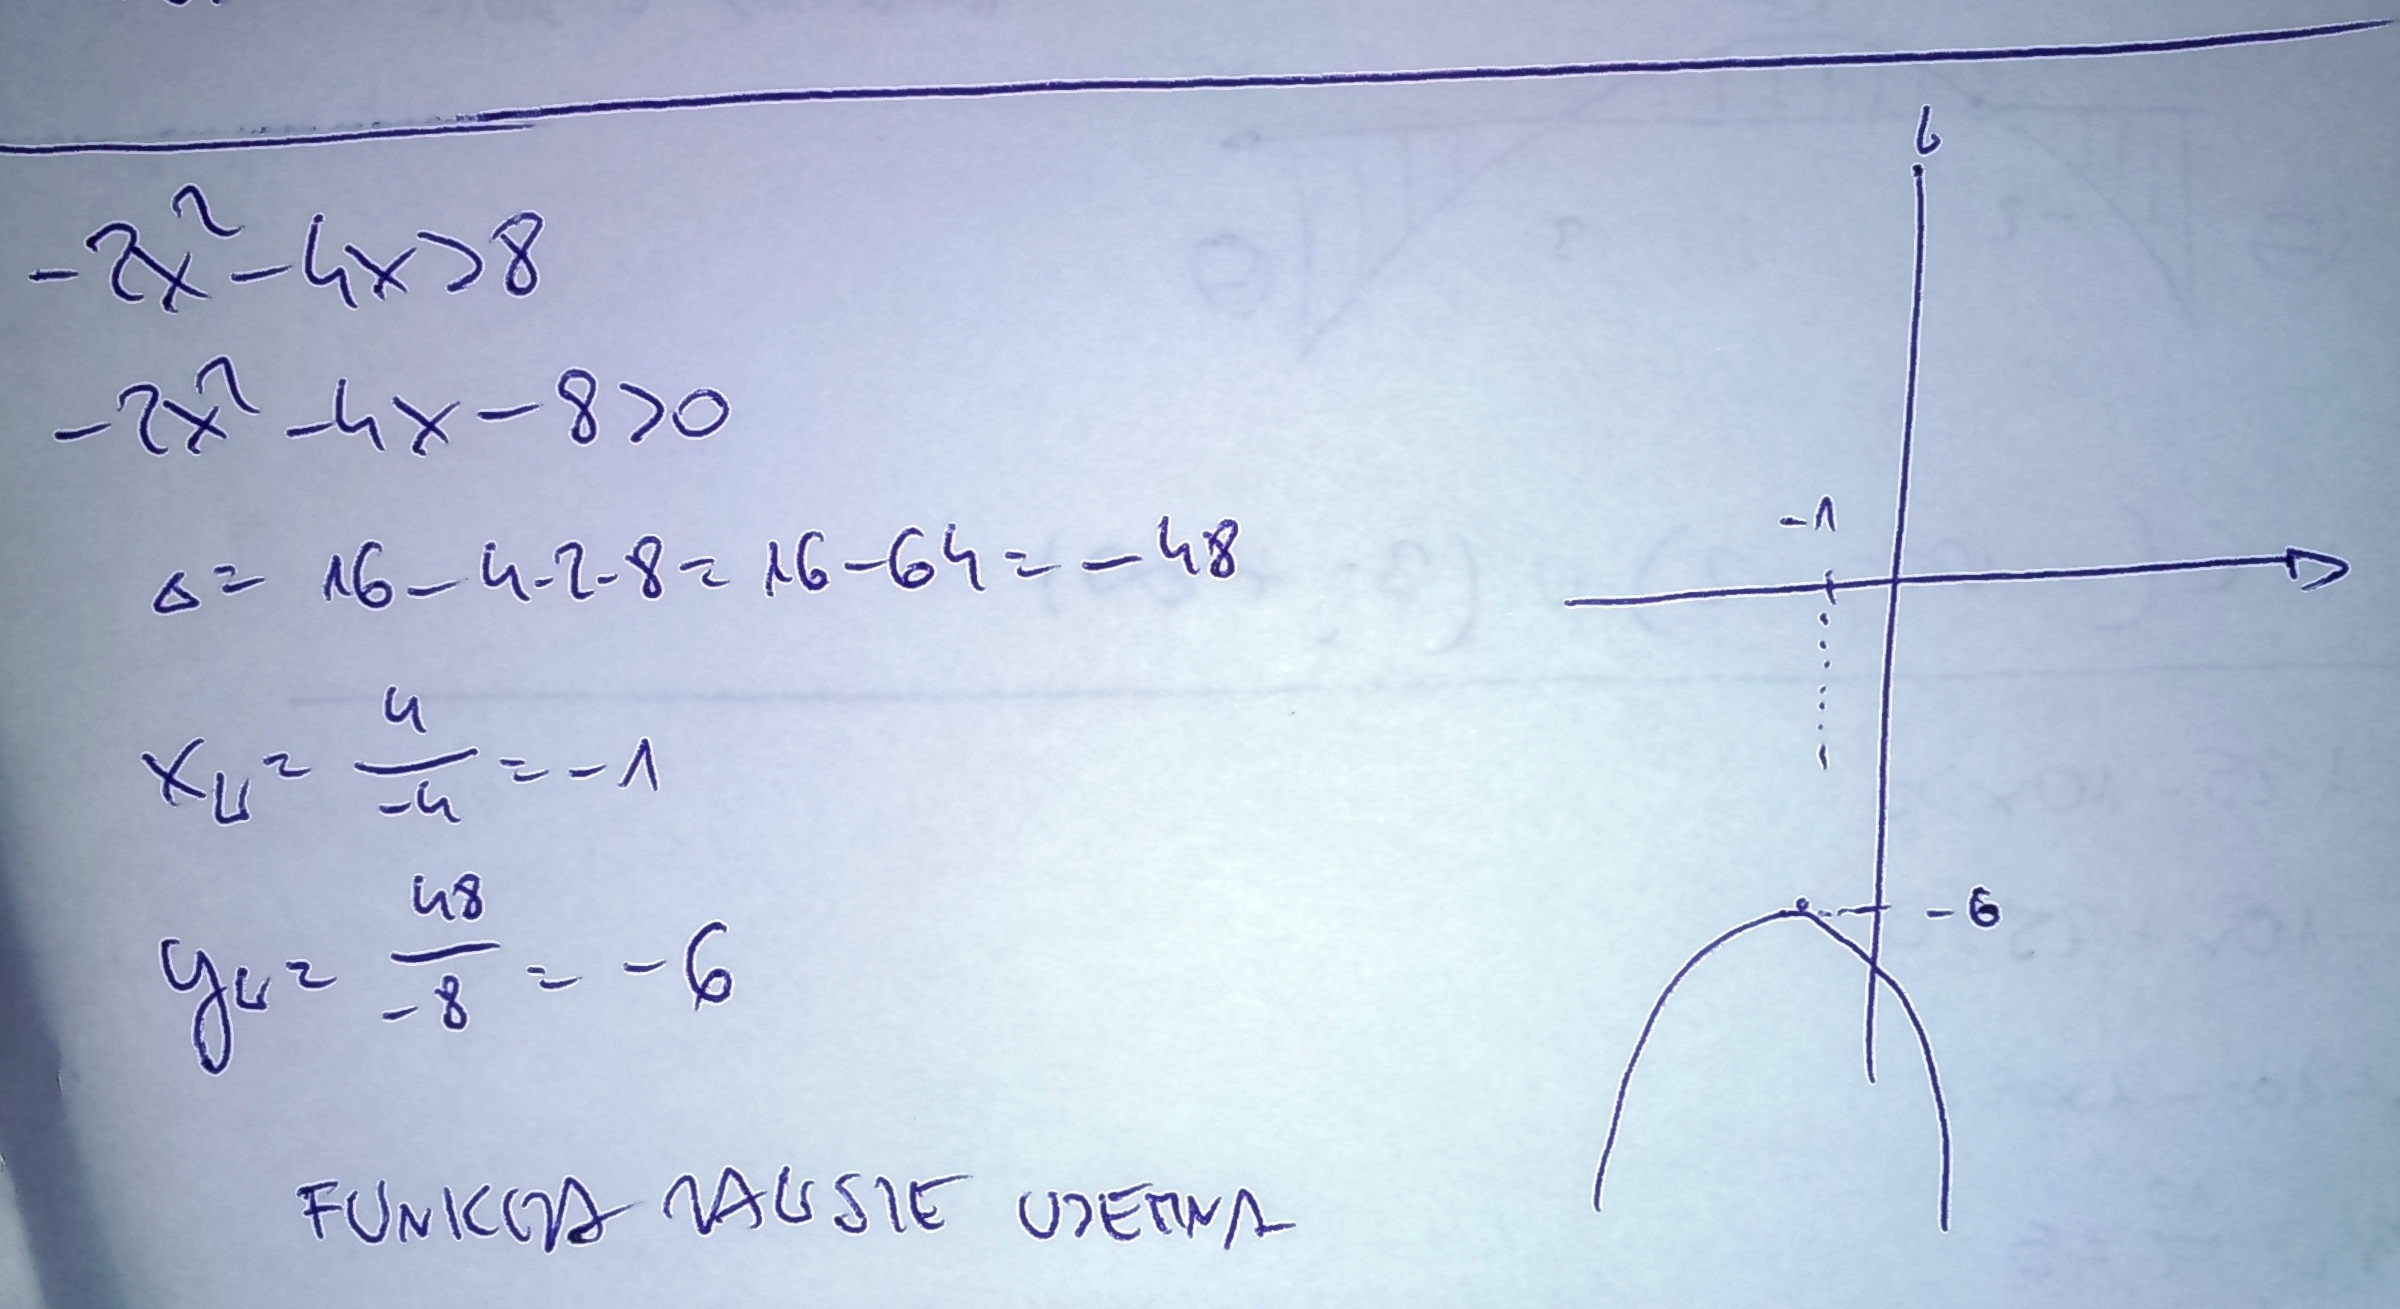 -2x² - 4x > 8
-2x² - 4x - 8 > 0
Δ = 16 - 4·2·8 = 16 - 64 = -48
x_w = 4/-4 = -1
y_w = 48/-8 = -6
FUNKCJA ZAWSZE UJEMNA
-1
-6